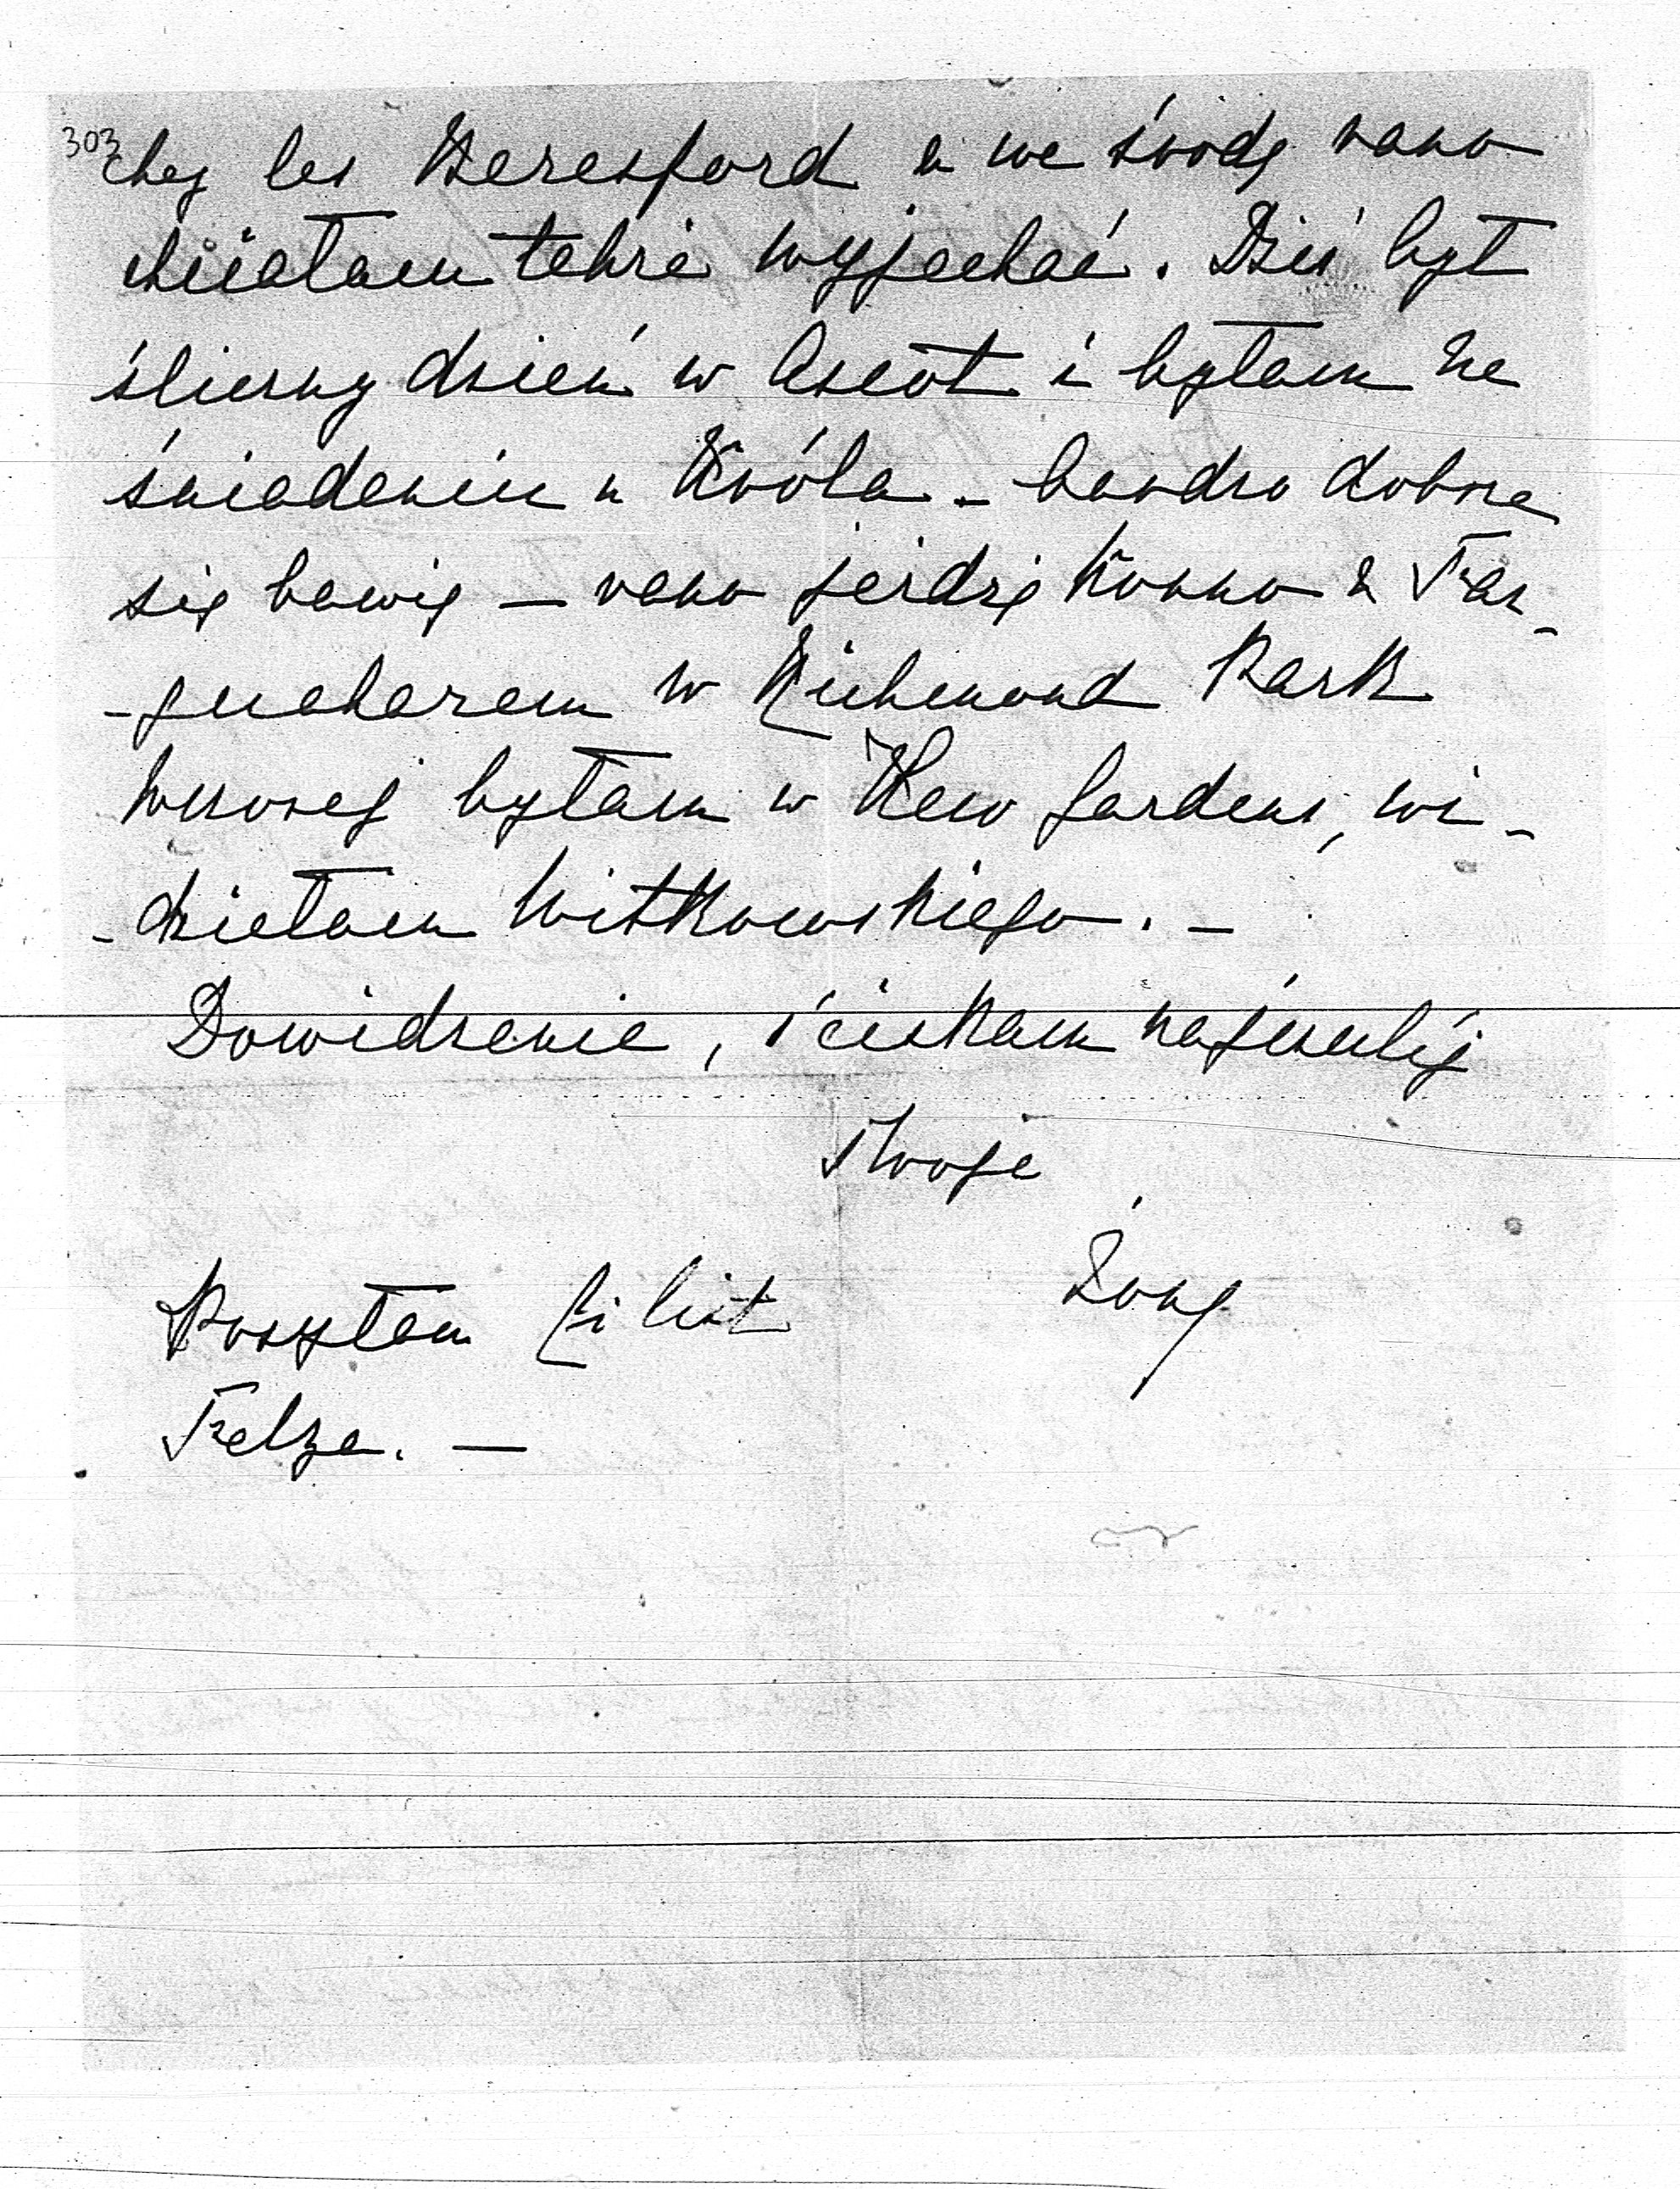 303
chez les Beresford a we środę rano
chciałam także wyjechać. Dziś był
śliczny dzień w Ascot i byłam na
śniadaniu u Króla – bardzo dobrze
się bawię – rano jeżdżę konno z Far-
-quaharem w Richmond Park
wczoraj byłam w Kew Gardens, wi-
-działam Witkowskiego. –
Dowidzenia, ściskam najczulej
Twoja
Posyłam Ci list
Felza. –